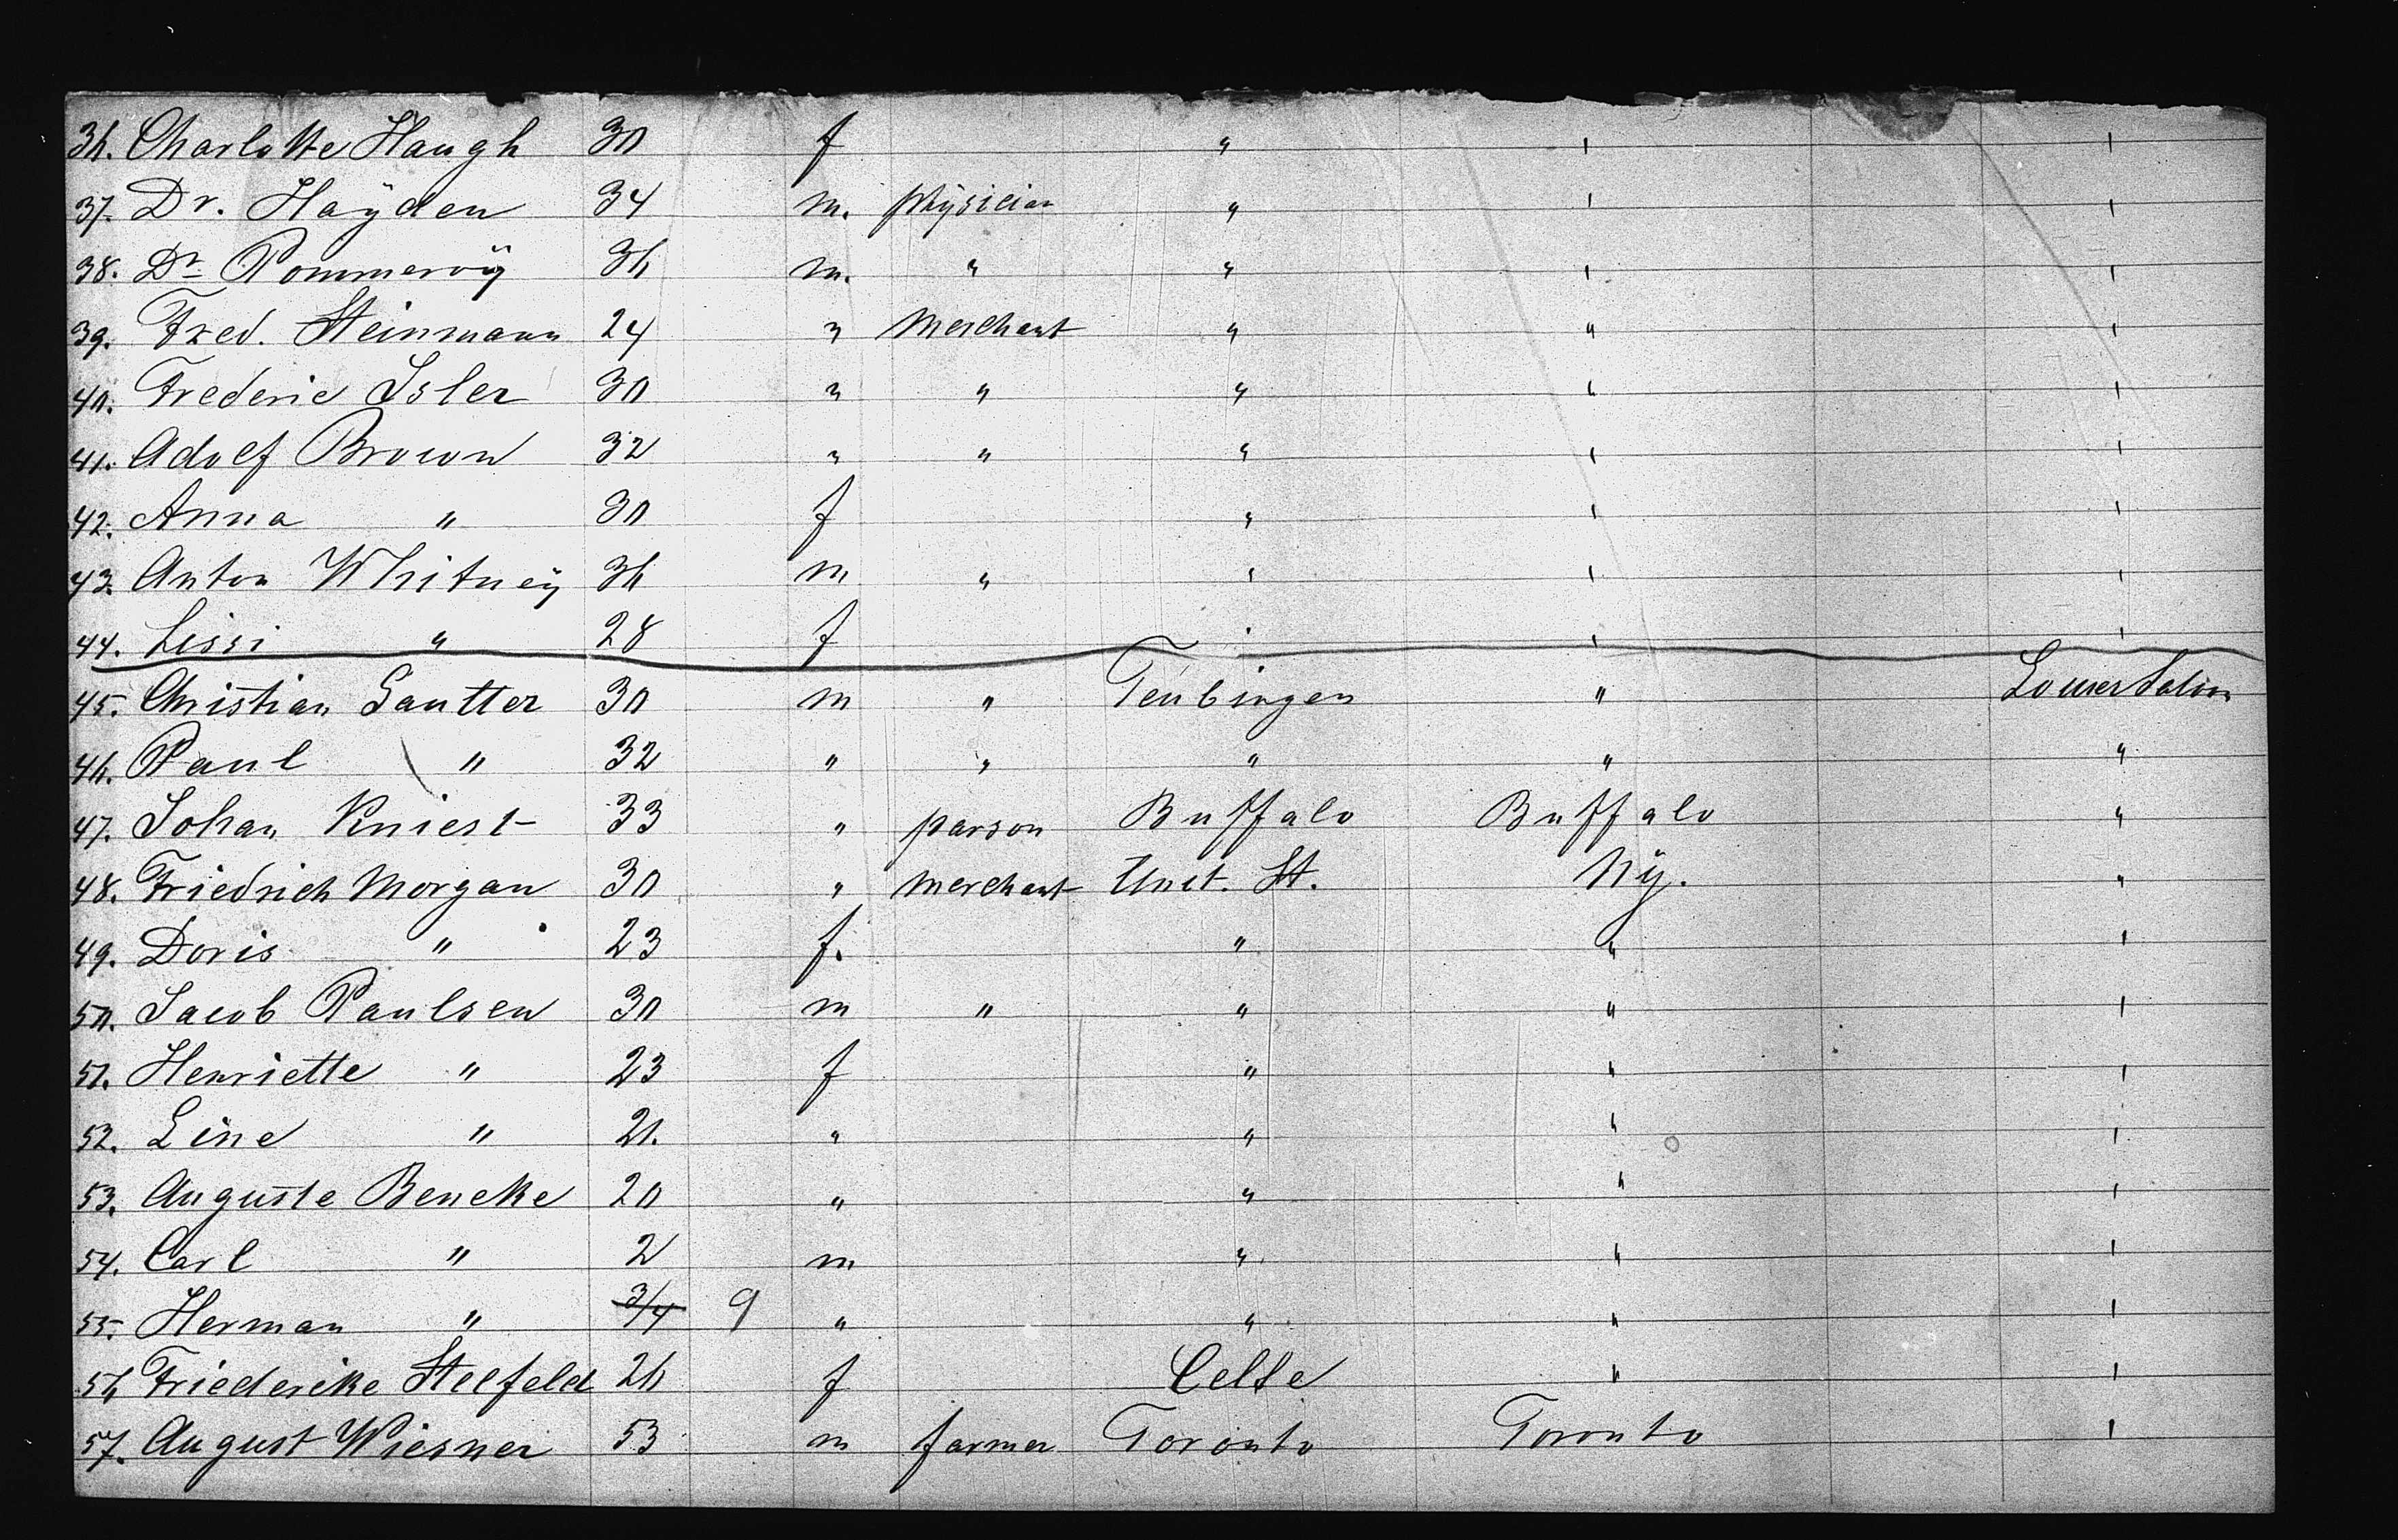 36. Charlotte Haugh 30 f " " "
37. Dr. Haÿden 34 m. phÿsician " " "
38. Dr. Pommeroÿ 36 m. " " " "
39. Fred. Steinmann 24 " Merchant " " "
40. Frederic Isler 30 " " " " "
41. Adolf Brown 32 " " " " "
42. Anna " 30 f " " "
43. Anton Whitneÿ 36 m " " " "
44. Lissi " 28 f " " "
45. Christian Sautter 30 m " Teubingen " Lower Saloon
46. Paul " 32 " " " " "
47. Johan Kniest 33 " parson Buffalo Buffalo "
48. Friedrich Morgan 30 " merchant Unit. St. Nÿ. "
49. Doris " 23 f. " " "
50. Jacob Paulsen 30 m " " " "
51. Henriette " 23 f " " "
52. Line " 21. " " " "
53. Auguste Beneke 20 " " " "
54. Carl " 2 m " " "
55. Herman " 3/4 9 " " " "
56 Friedericke Steefeld 26 f Celle " "
57. August Wiesner 53 m farmer Toronto Toronto "